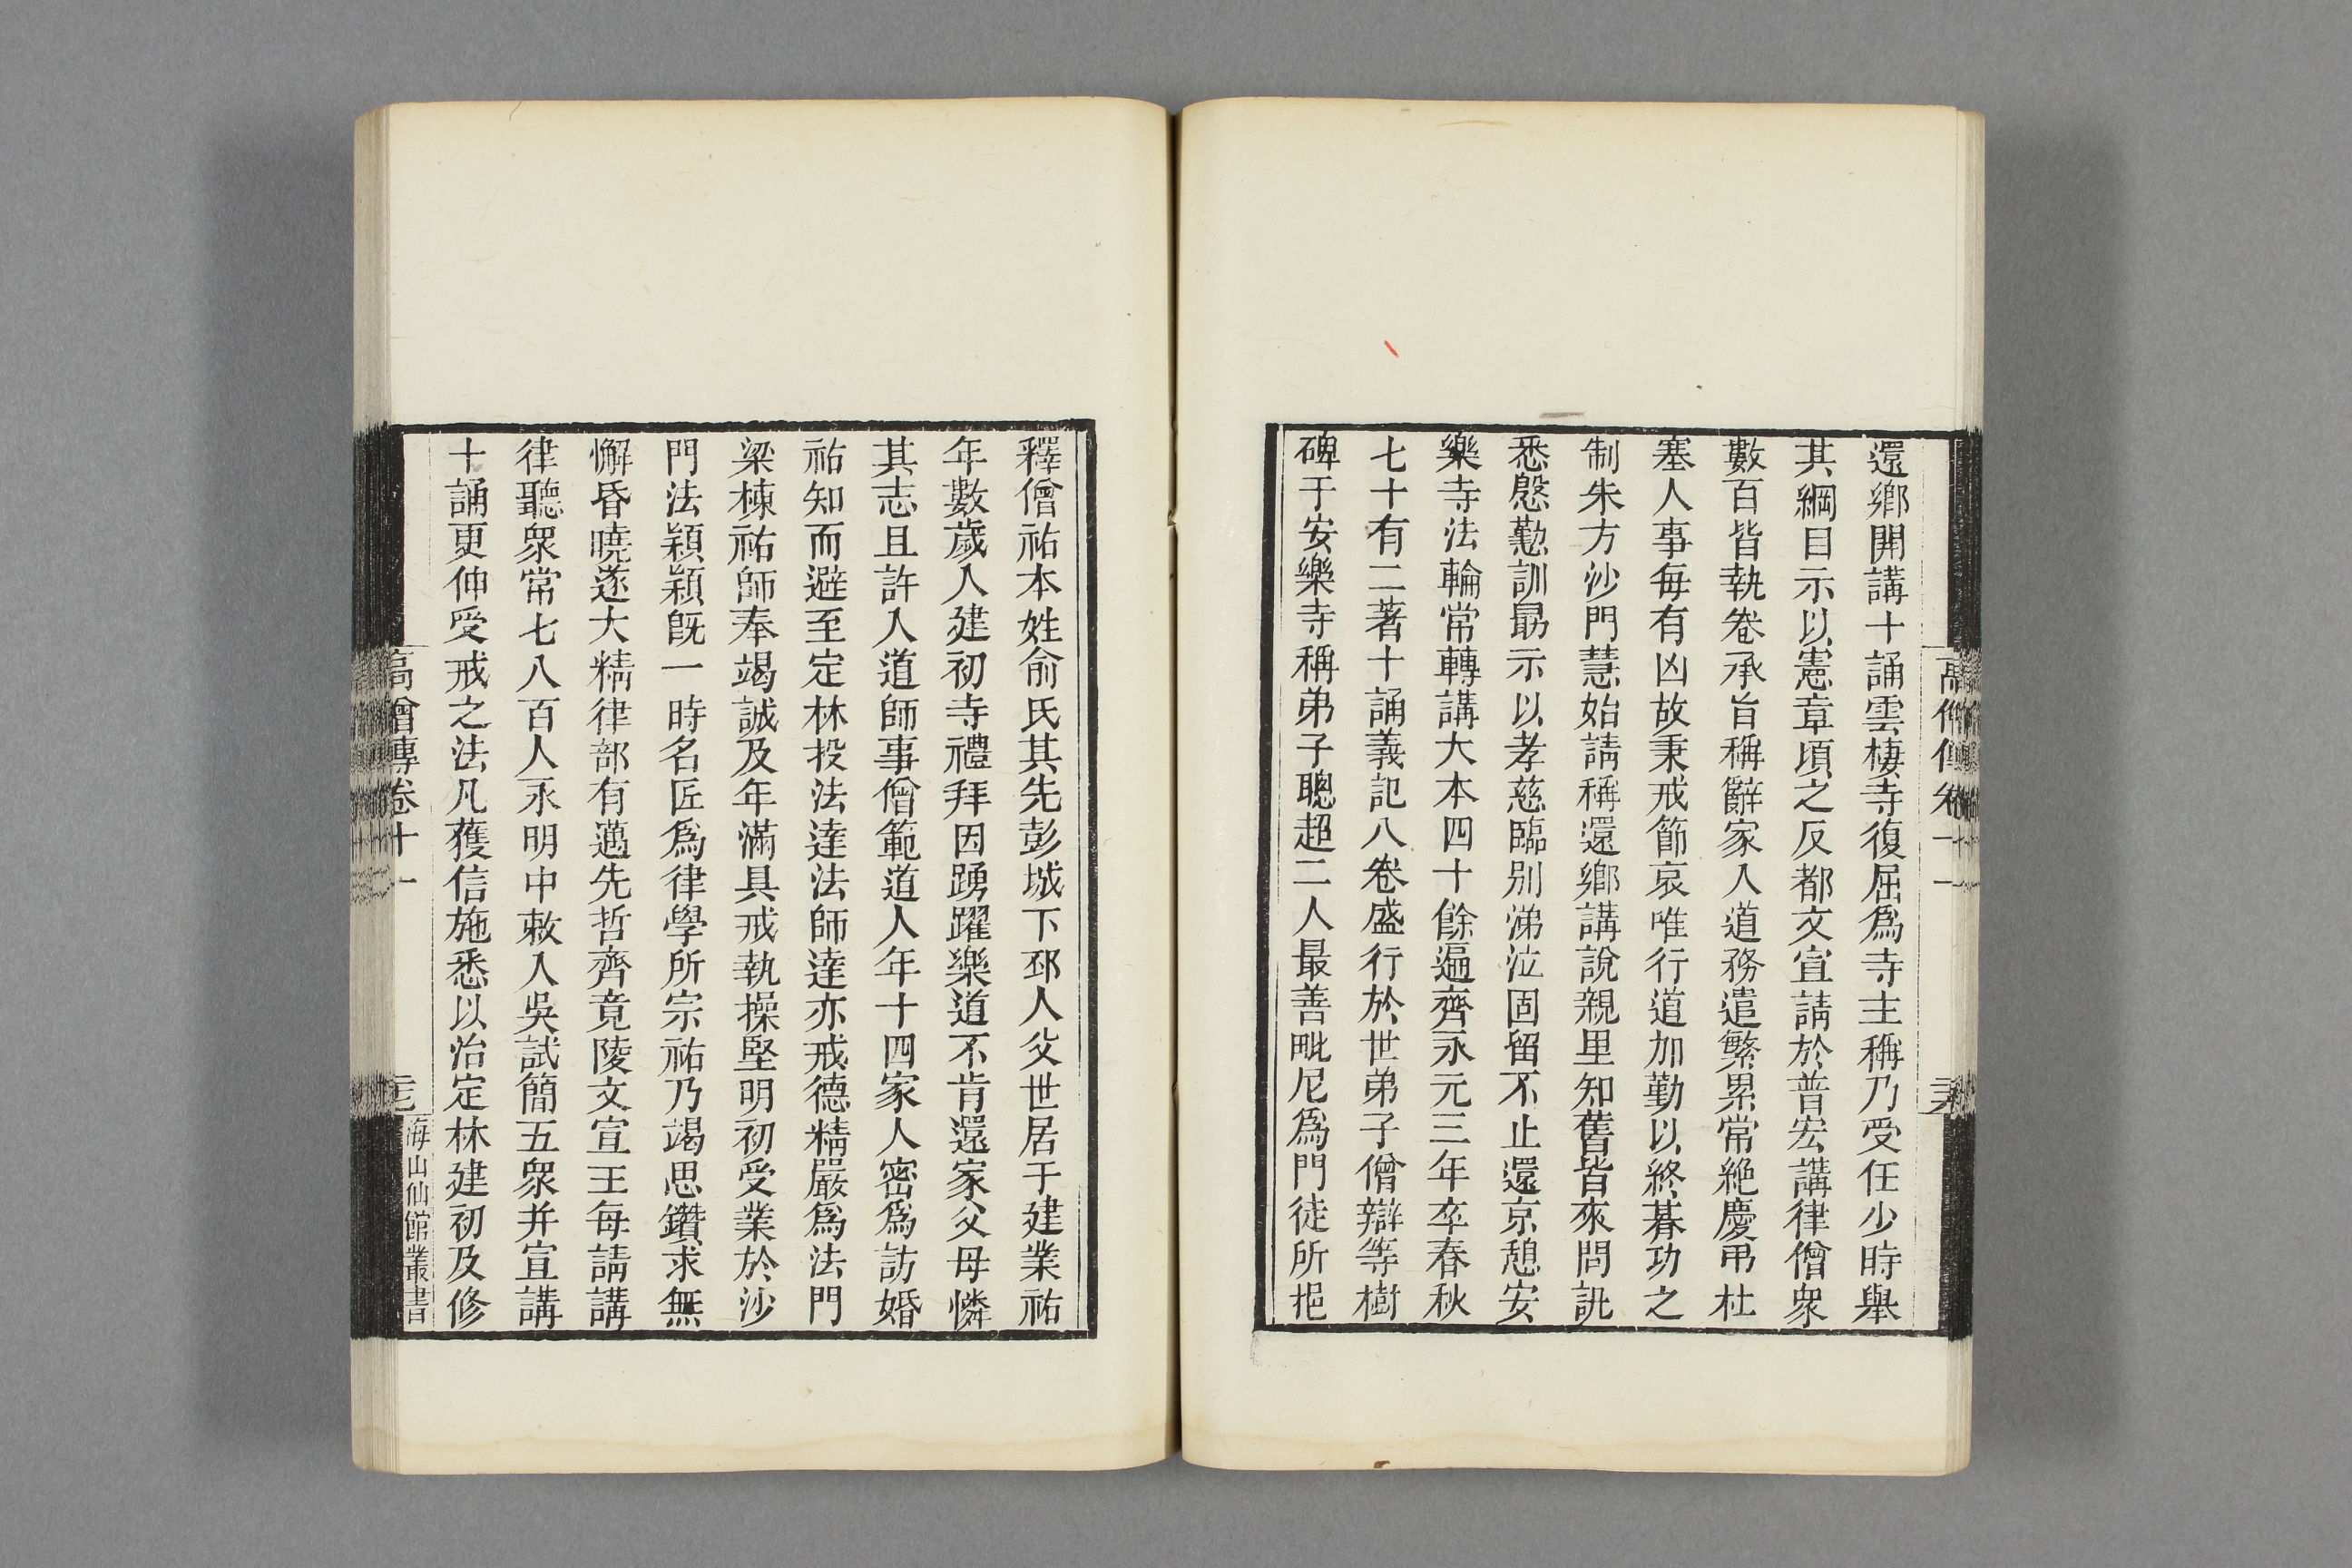 還鄉開講十誦雲棲寺復屈爲寺主稱乃受任少時舉
其綱目示以憲章頃之反都文宣請於普宏講律僧衆
數百皆執卷承旨稱辭家入道務遣繁累常絶慶弔杜
塞人事每有凶故秉戒節哀唯行道加勤以終朞功之
制朱方沙門慧始請稱還鄉講說親里知舊皆來問訊
悉慇懃訓勗示以孝慈臨别涕泣固留不止還京憩安
樂寺法輪常轉講大本四十餘遍齊永元三年卒春秋
七十有二著十誦義記八卷盛行於世弟子僧辯等樹
碑于安樂寺稱弟子聰超二人最善毗尼爲門徒所挹
釋僧祐本姓俞氏其先彭城下邳人父世居于建業祐
年數歲入建初寺禮拜因踴躍樂道不肯還家父母憐
其志且許入道師事僧範道人年十四家人密爲訪婚
祐知而避至定林投法達法師達亦戒德精嚴爲法門
梁棟祐師奉竭誠及年滿具戒執操堅明初受業於沙
門法穎穎既一時名匠爲律學所宗祐乃竭思鑽求無
懈昏曉遂大精律部有邁先哲齊竟陵文宣王每請講
律聽衆常七八百人永明中敕入吳試簡五衆并宣講
十誦更伸受戒之法凡獲信施悉以治定林建初及修
高僧傳卷十一
海山仙館叢書